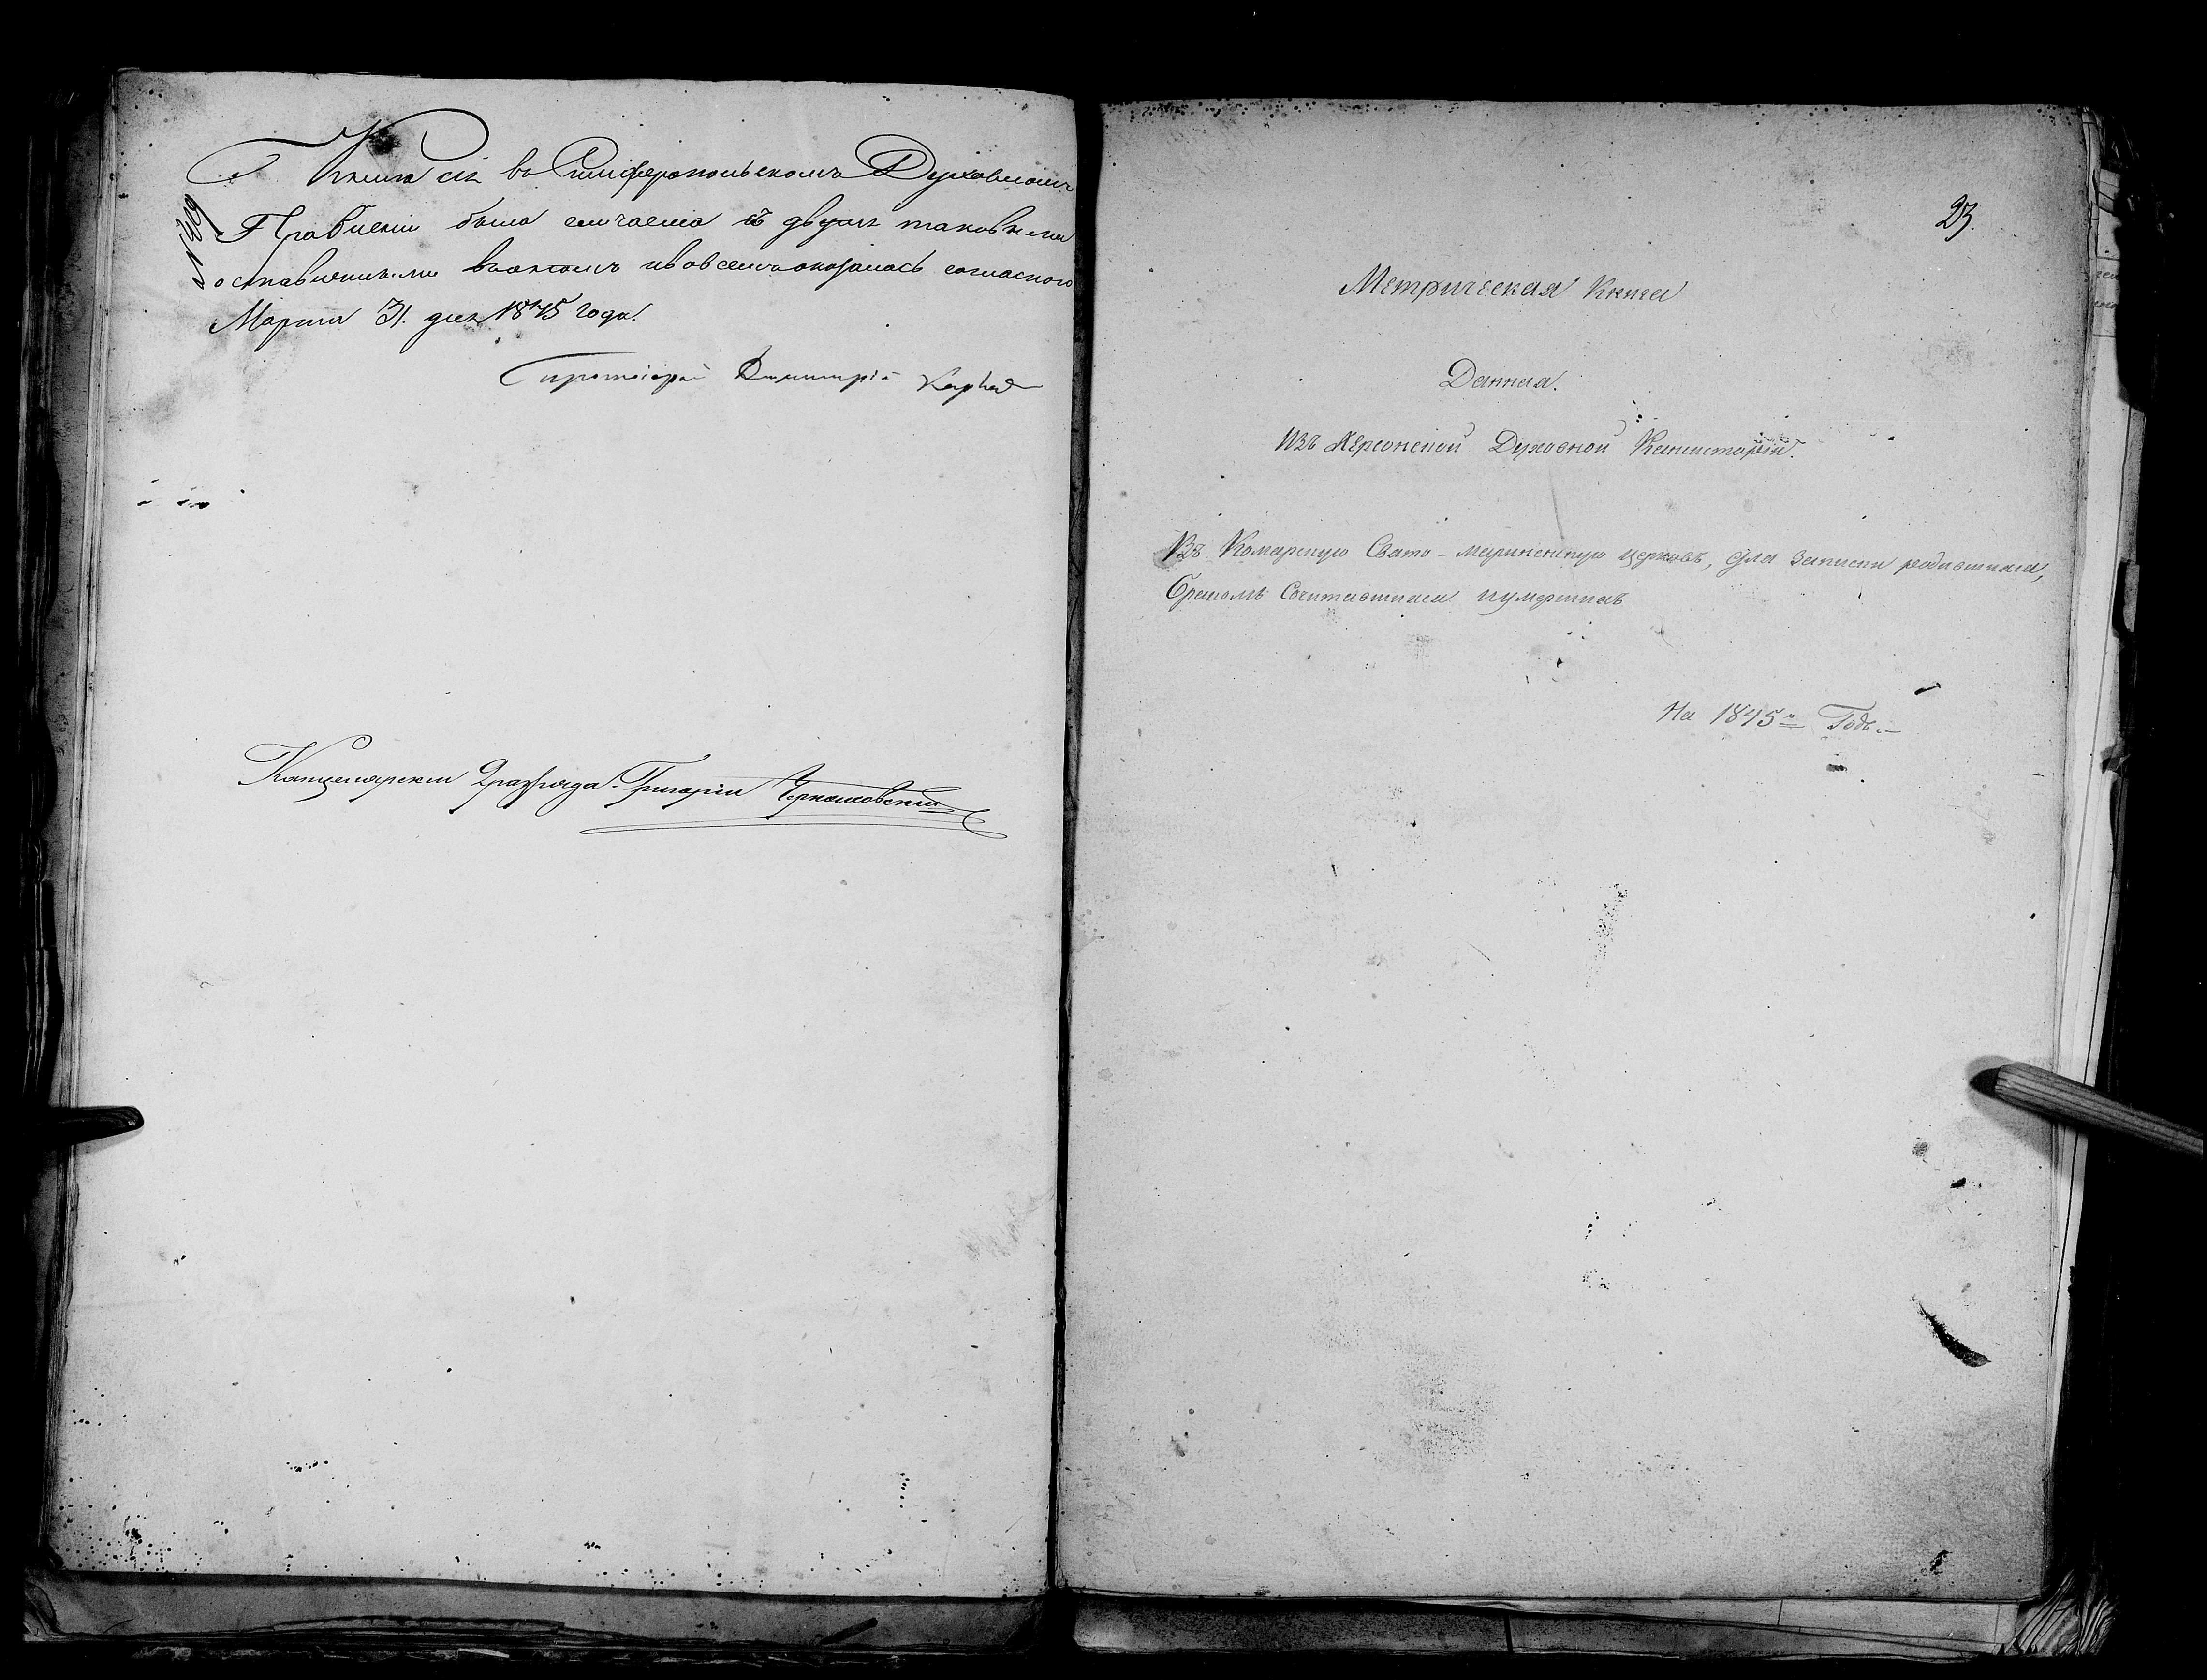 Книга сія въ Симферопольскомъ Духовномъ
Правленіи была сличаема съ двумя таковыми
оставшимися и во всемъ оказалась согласною
Марта 31. дня 1845 года.
Протоіерей Димитрій
Канцеляристъ 2 разряда Григорій
23.
Метрическая Книга
Данная.
изъ Херсонской Духовной Консисторіи.
Въ Комарскую Свято-маринскую церковь, для записи родившихся,
бракомъ сочитавшихся иумершихъ
На 1845й Годъ.